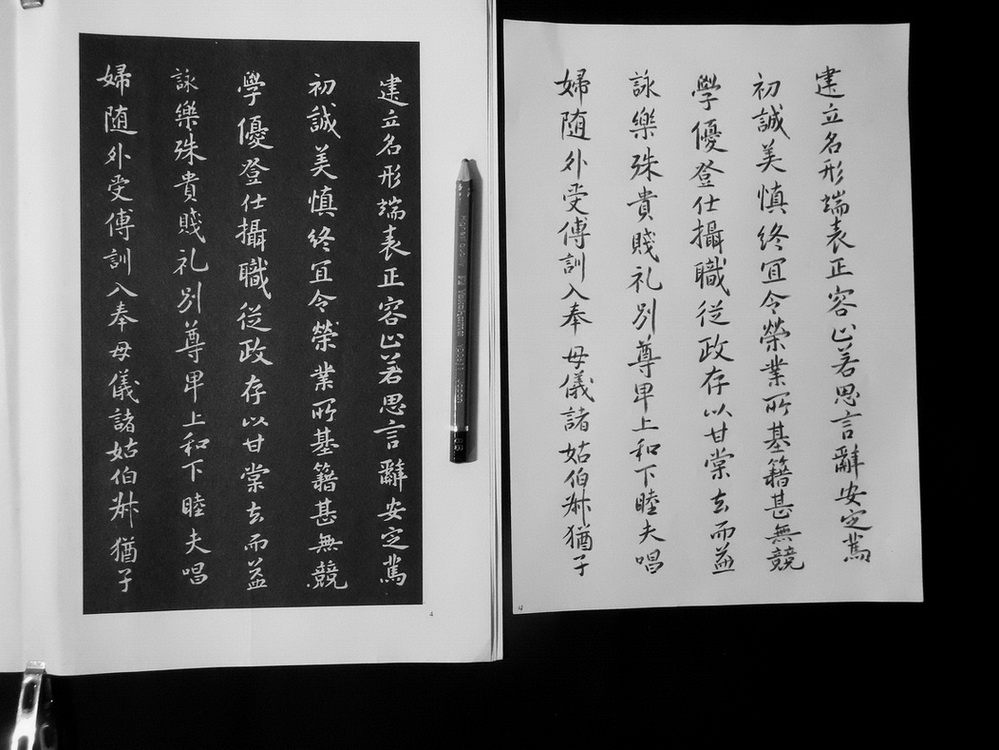 建立名形端表正容止若思言辭安定篤
初誠美慎終宜令榮業所基籍甚無競
學優登仕攝職從政存以甘棠去而益
詠樂殊貴賤礼別尊卑上和下睦夫唱
婦随外受傅訓入奉母儀諸姑伯叔猶子
4
建立名形端表正容止若思言辭安定篤
初誠美慎終宜令榮業所基籍甚無競
學優登仕攝職從政存以甘棠去而益
詠樂殊貴賤礼別尊卑上和下睦夫唱
婦随外受傅訓入奉母儀諸姑伯叔猶子
4